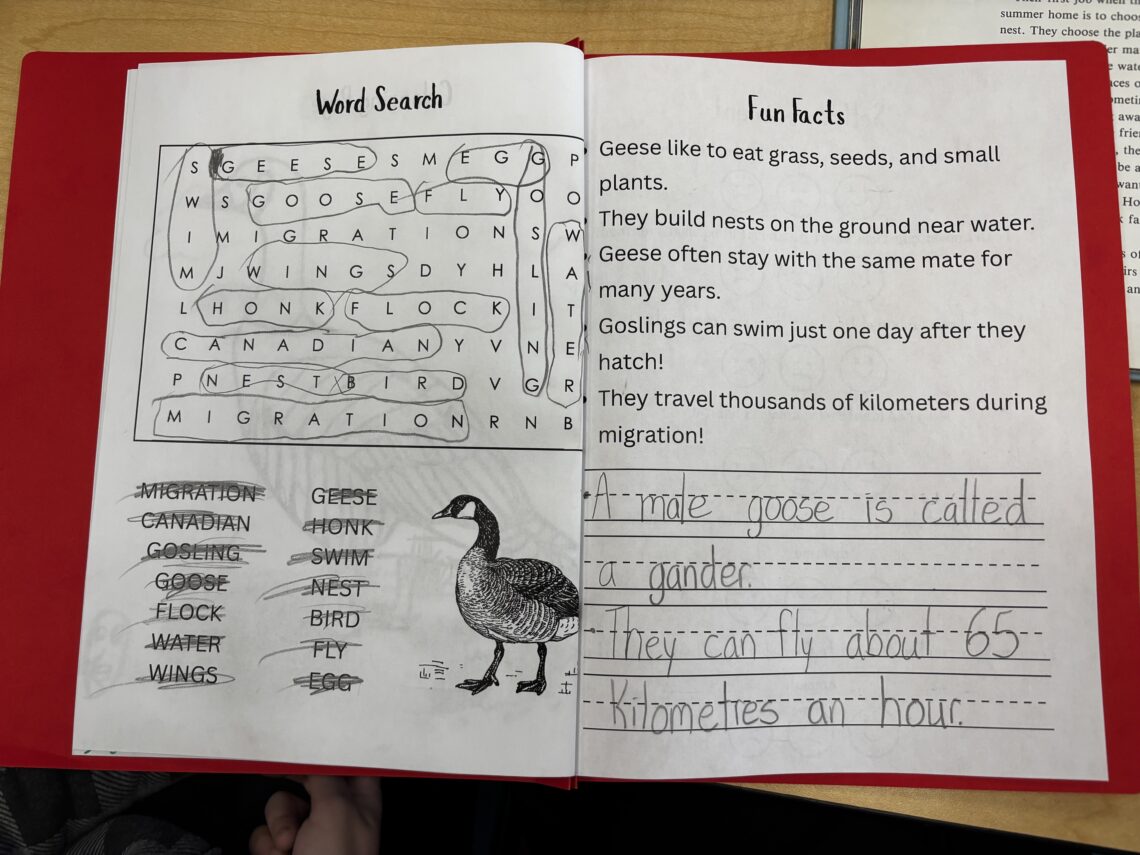 Word Search
S G E E S E S M E G G P
W S G O O S E F L Y O O
I M I G R A T I O N S W
M J W I N G S D Y H L A
L H O N K F L O C K I T
C A N A D I A N Y V N E
P N E S T B I R D V G R
M I G R A T I O N R N B
MIGRATION GEESE
CANADIAN HONK
GOSLING SWIM
GOOSE NEST
FLOCK BIRD
WATER FLY
WINGS EGG
Fun Facts
Geese like to eat grass, seeds, and small
plants.
They build nests on the ground near water.
Geese often stay with the same mate for
many years.
Goslings can swim just one day after they
hatch!
They travel thousands of kilometers during
migration!
A male goose is called
a gander.
They can fly about 65
Kilometres an hour.
summer home is to
nest. They choose the